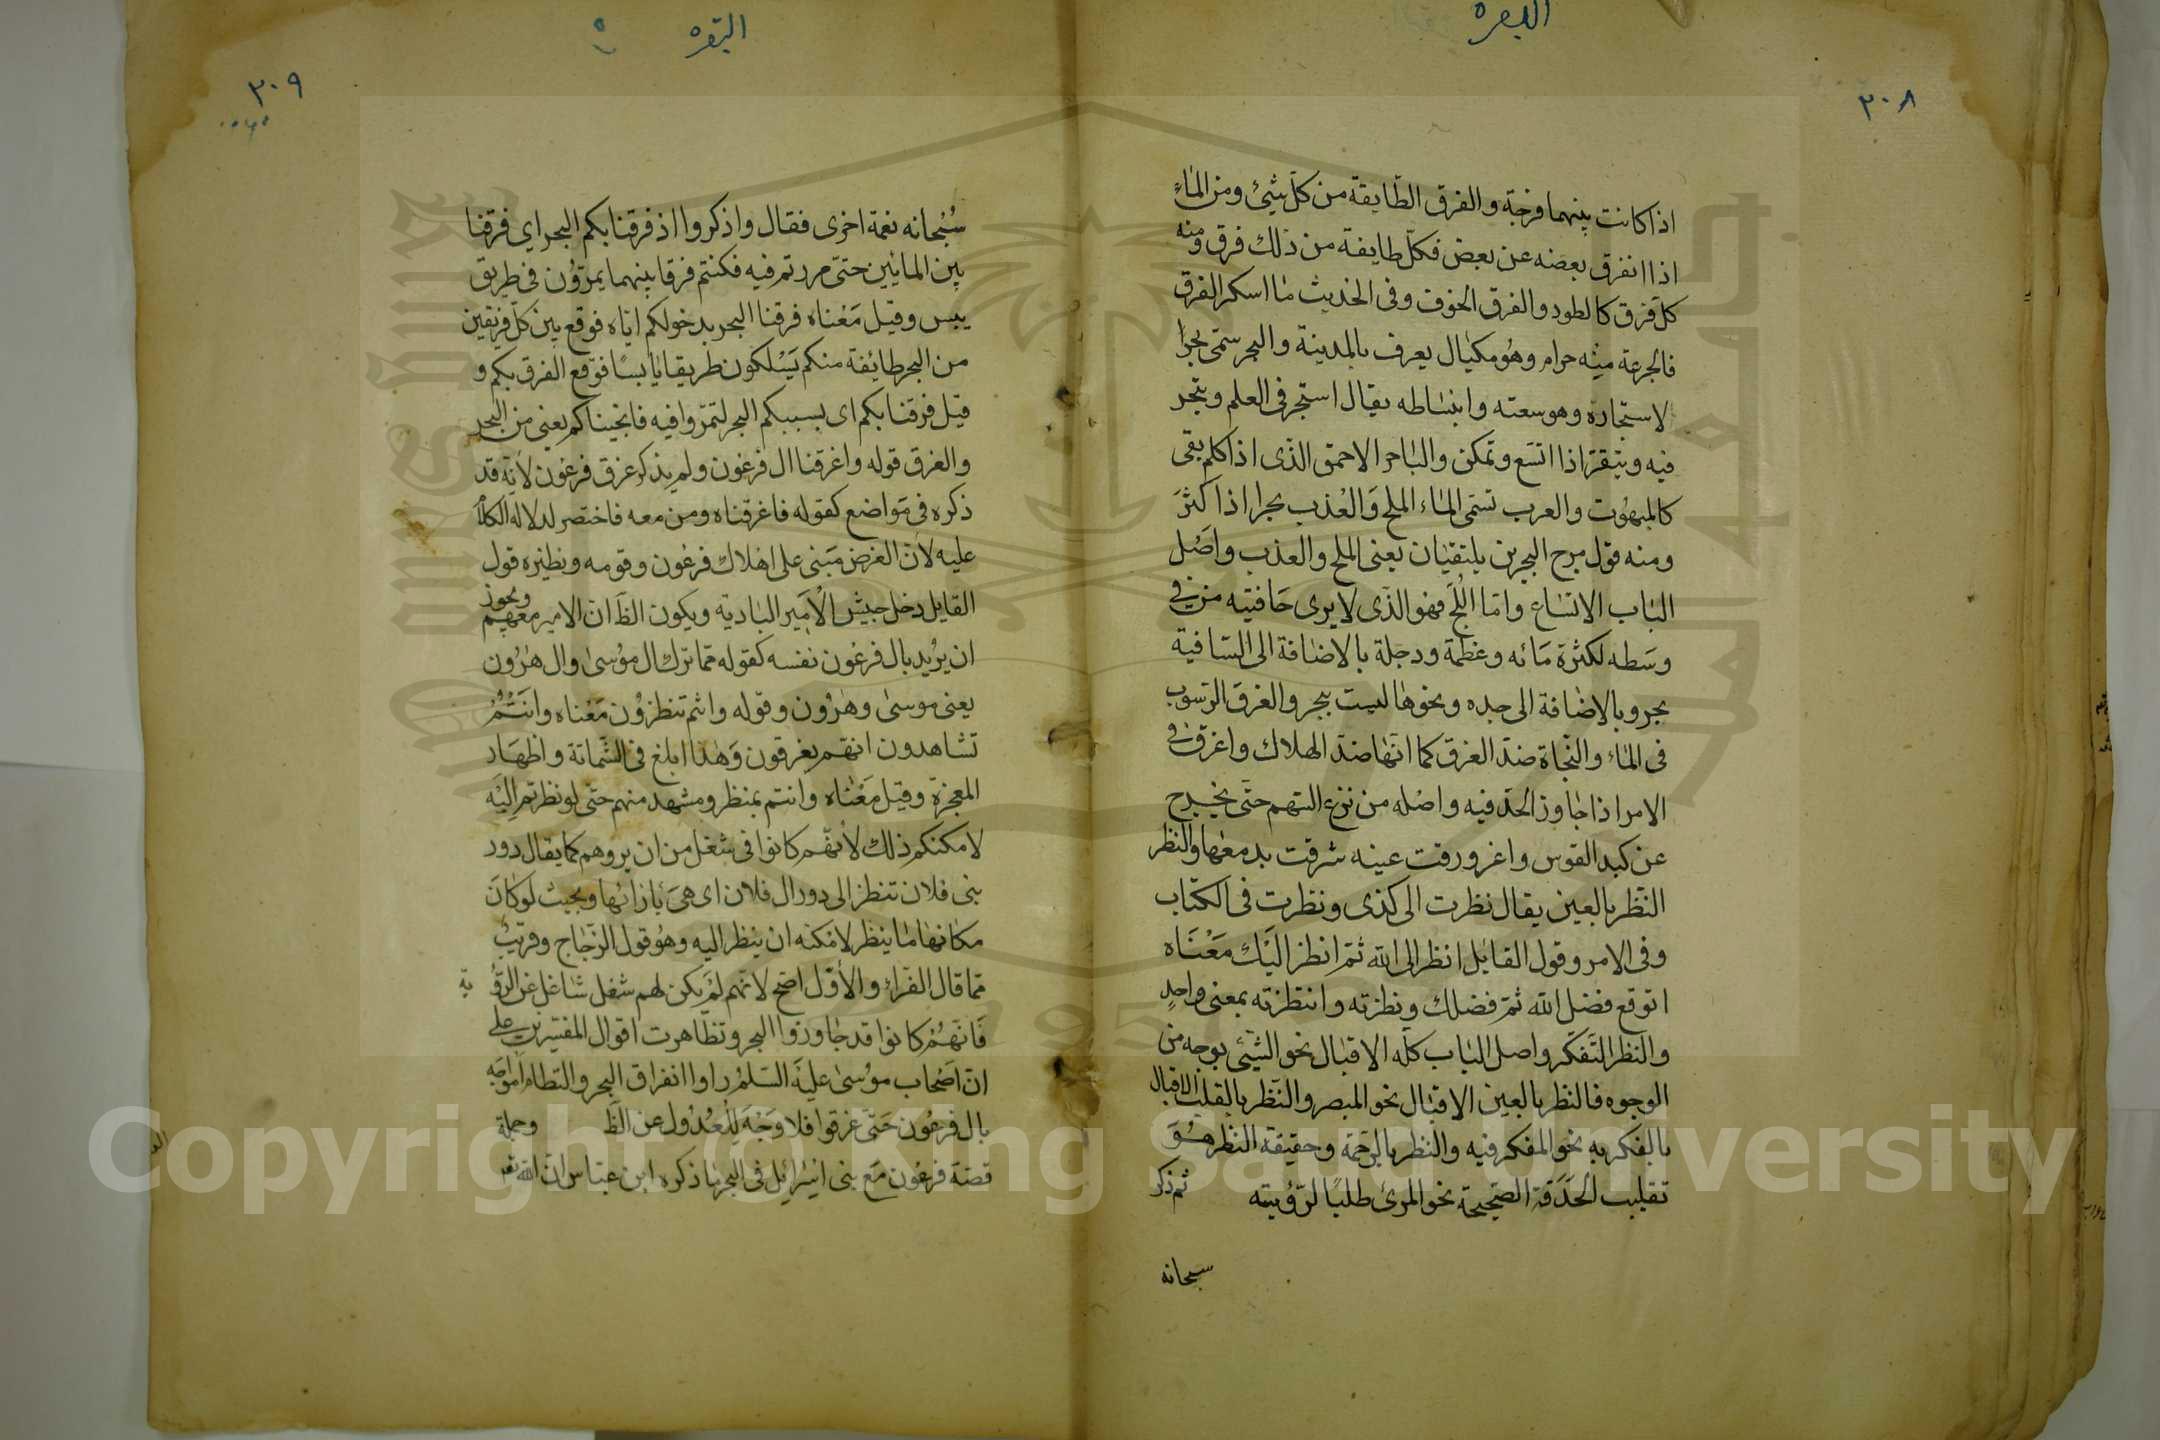 البقرة
٣٠٨
اذا كانت بينهما فرجة والفرق الطايفة من كلّ شيئ ومن الماء
اذا انفرق بعضه عن بعض فكلّ طايفة من ذلك فرق ومنه
كل فرق كالطود والفرق الخوف وفى الحديث ما اسكر الفرق
فالجرعة منه حرام وهو مكيال يعرف بالمدينة والبحر سمّى بحرا
لاستبحاره وهو سعته وانبساطه يقال استبحر فى العلم وتبحر
فيه وتبقرّ اذا اتسَع وتمكن والباحر الاحمق الذى اذا كلم بقى
كالمبهوت والعرب تسمّى الماء الملح وَالعُذب بحرا اذا كثرَ
ومنه قول مرج البحرين يلتقيان يعنى الملح والعذب واصُل
الباب الاتساع وامّا اللُجّ فهو الذّى لا يرى حَافتيه من فى
وسَطه لكثرة مَائه وعَظمة ودجلة بالاضافة الى السّافية
بحر وبالاضافة الى جده ونحوها ليست ببحر والغرق الرّسوب
فى الماء والنّجاة ضدّ الغرق كما انّها ضدّ الهلاك واغرق فى
الامر اذا جاوز الحدّ فيه واصله من نزع السّهم حتّى يخرج
عن كبد القوس واغرورقت عينه شرقت بدمعها والنظر
النّظر بالعين يقال نظرت الى كذى ونظرت فى الكتاب
وفى الامر وقول القايل انظر الى الله ثمّ انظر اليَك مَعْنَاه
اتوقع فضل الله ثمّ فضلك ونظرته وانتظرته بمعنى واحدٍ
والنّظر التّفكّر واصل الباب كلّه الاقبال نحو الشّيئ بوجه من
الوجوه فالنظر بالعين الاقبال نحو المبصر والنّظر بالقلب الاقبال
بالفكر به نحو المفكر فيه والنظر بالرّحمة وحقيقة النظر هُوَ
تقليب الحَدَقة الصّحيحة نحو المرئ طلبًا لرؤيته ثم ذكر
سبحانه
البقرة
٣٠٩
سُبُحانه نعمة اخرى فقال واذكروا اذ فرقنا بكم البحر اي فرقنا
بين المائين حتىّ مررتم فيه فكنتم فرقا بينهما يمرّون فى طريق
يبس وقيل مَعْناه فرقنا البحر بدخولكم ايّاه فوقع بين كلّ فريقين
من البحر طائفة منكم يَسْلكون طريقا يابسًا فوقع الفرق بكم و
قيل فرقنا بكم اى بسببكم البحر لتمرّوا فيه فانجيناكم يعنى من البحر
والغرق قوله واغرقنا ال فرعون ولم يذكر غرق فرعون لانّه قد
ذكره فى مَواضع كقوله فاغرقناه ومن معه فاختصر لدلالة الكلام
عليه لأنّ الغرض مَبنى على اهلاك فرعون وقومه ونظيره قول
القايل دخل جيش الأمير البادية ويكون الظّ انّ الامير معهم ويجوز
ان يرُيد بال فرعون نفسه كقوله ممّا ترك ال موُسىٰ وال هٰرُون
يعنى موسىٰ وهٰرُون وقوله وانتم تنظروُن مَعْناه وانَتُمُ
تشاهدون انهّم يغرقون وَهٰذا ابلغ فى الشّماتة واظهَار
المعجزة وقيل مَعْنَاه وانتم بمنظر ومشهد منهم حتّى لو نظرتم اليَه
لامكنكم ذلك لأنهّم كانوا فى شغل من ان يروهم كما يقال دور
بنى فلان تنظر الى دور ال فلان اى هىَ بازائها وبحيث لو كانَ
مكانها ما ينظر لامكنه ان ينظر اليه وهُو قول الزّجاج وقريبٌ
ممّا قال الفّراء والأوّل اصّح لانّهم لَم يكن لهم شغل شاغل عن الرؤية
فَانّهَمُ كانوا قد جَاوزوا البحر وتظاهرت اقوال المفسّرين على
انّ اصَحاب موُسىٰ عليَه السّلمُ راوا انفراق البحر والتطام امواجه
بال فرعُون حَتّى غرقوا فلا وَجْهَ لِلُعُدُول عن الظَ وجملة
قصّة فرعُون مَع بنى اسرائيل فى البحر ما ذكره ابن عبّاس انّ الله تعر
Copyright © King Saud University
1957